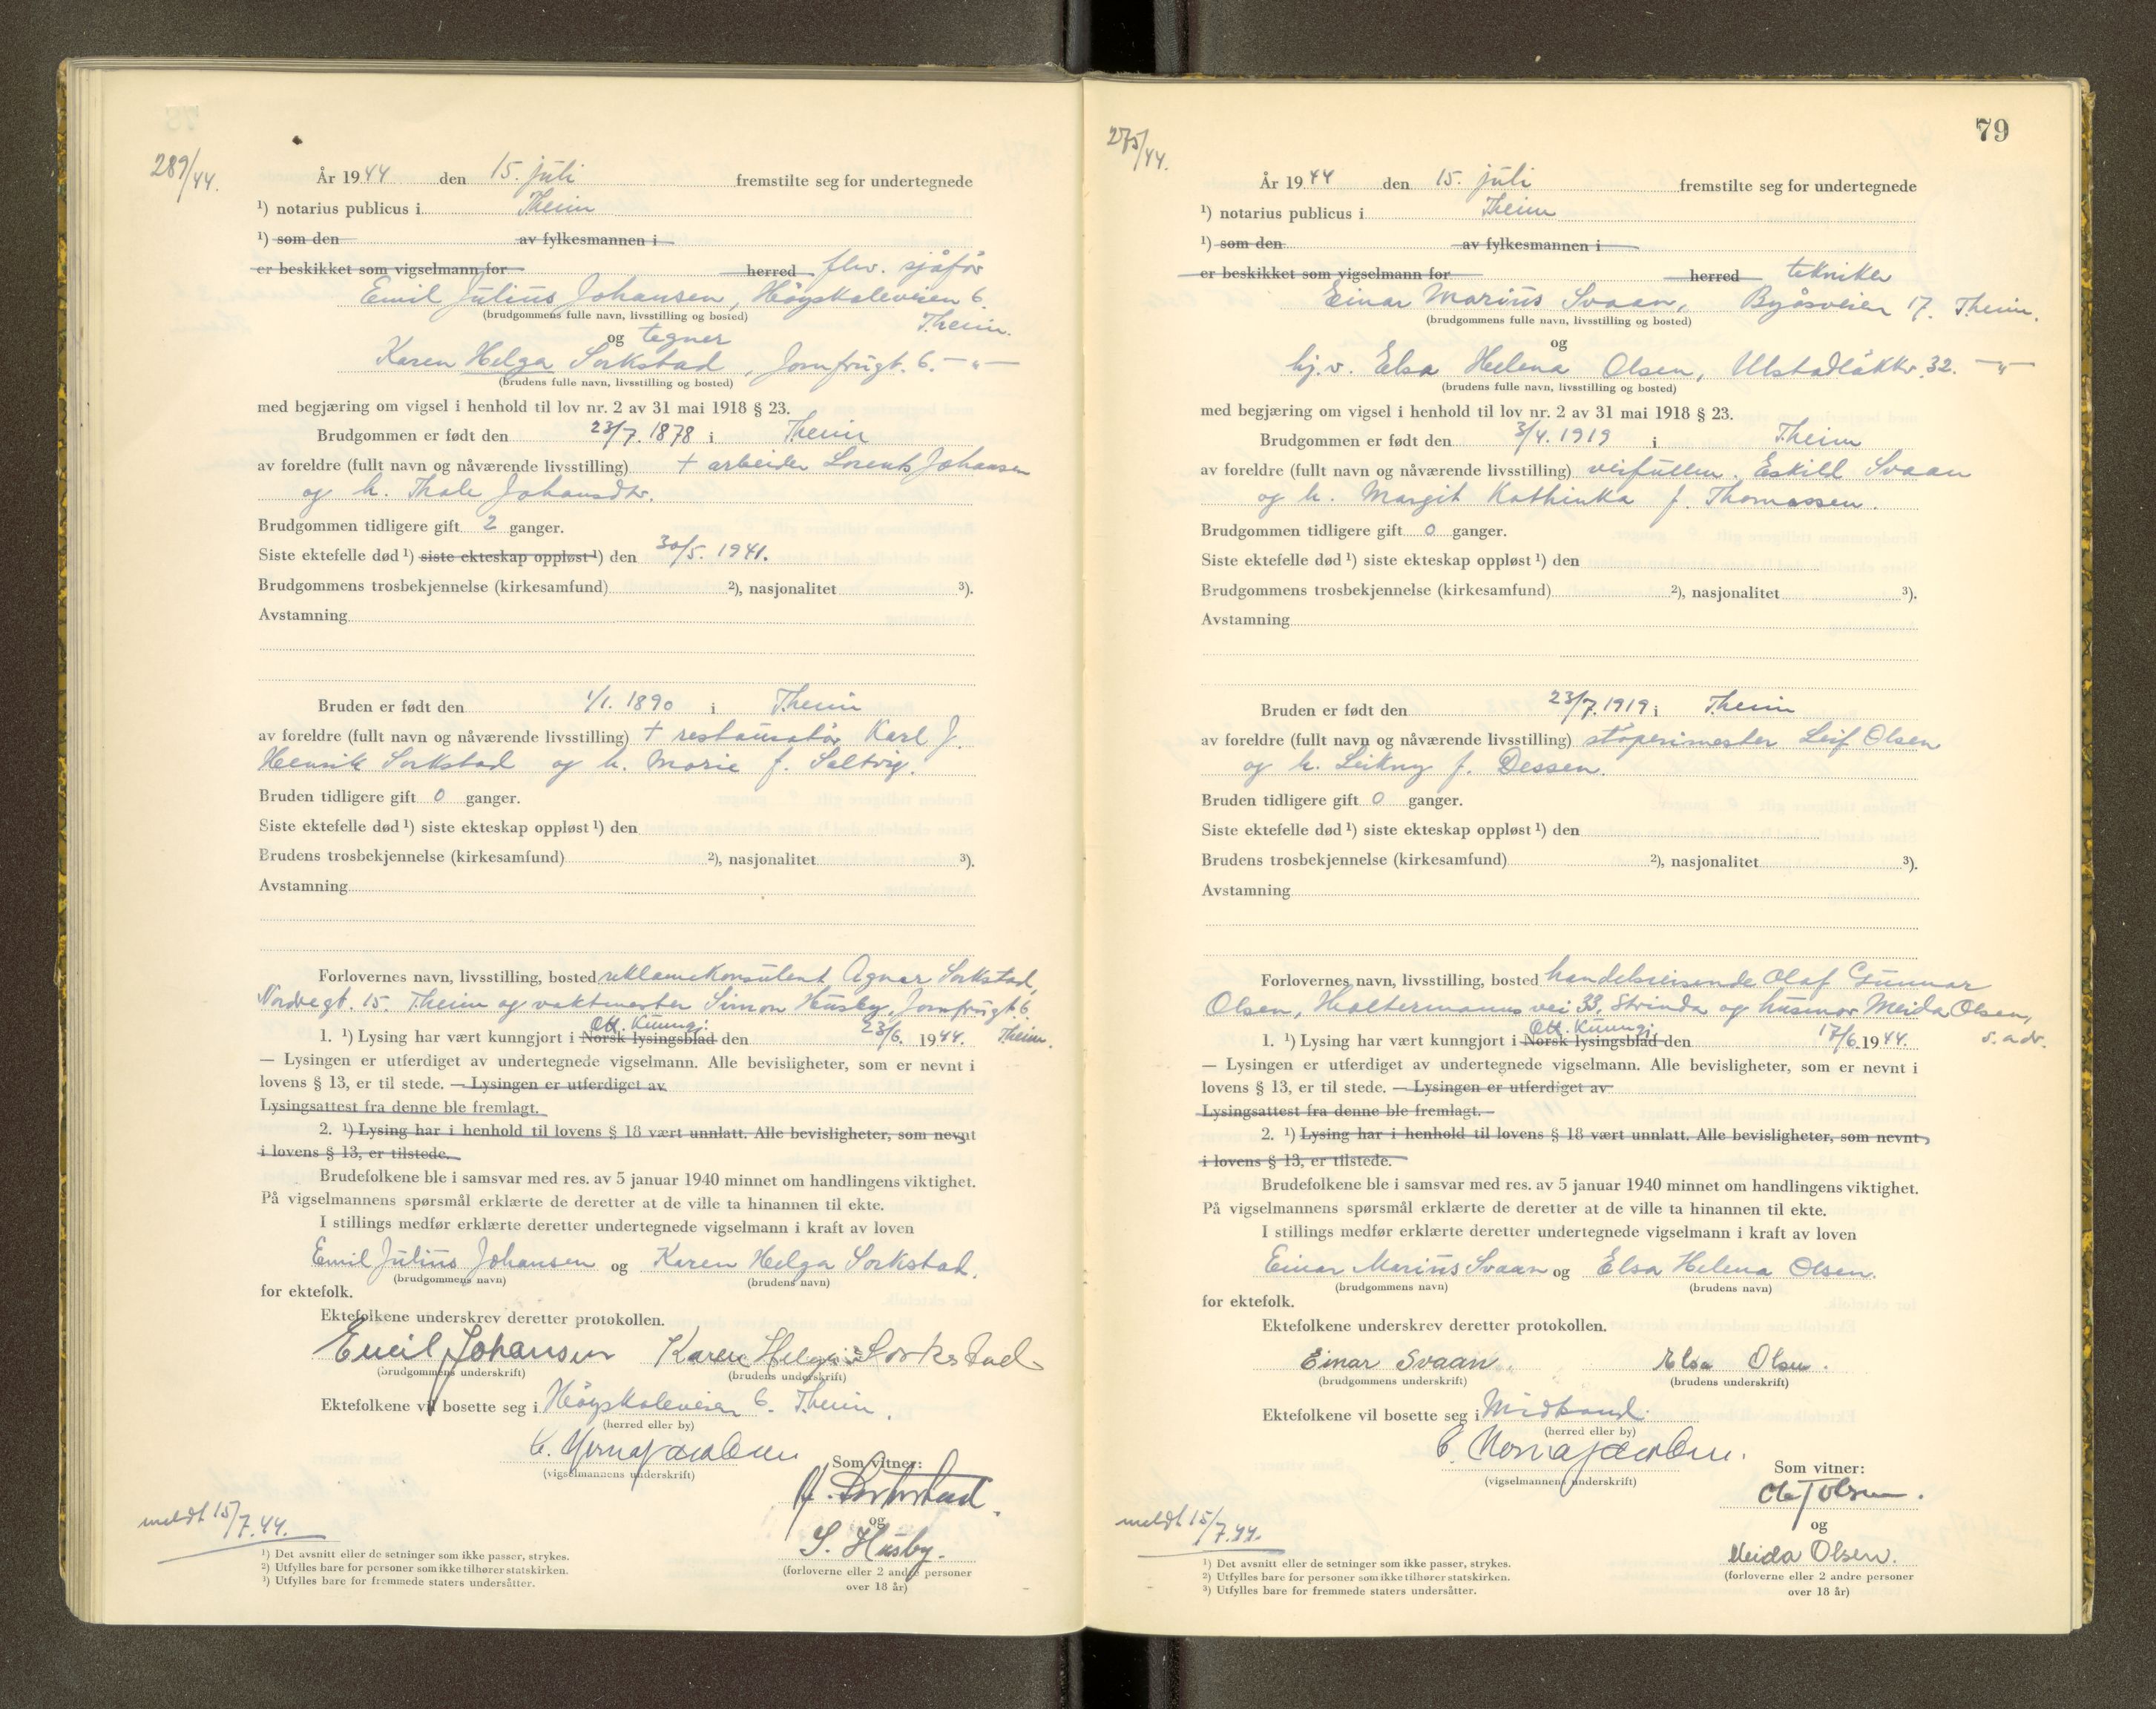 289/44.
År 1944 den 15. juli fremstilte seg for undertegnede
¹) notarius publicus i Theim
¹) som den av fylkesmannen i
er beskikket som vigselmann for herred fhv. sjåfør
Emil Julius Johansen, Høyskoleveien 6.
(brudgommens fulle navn, livsstilling og bosted) Theim.
og tegner
Karen Helga Sorkstad, Jomfrugt. 6. —"—
(brudens fulle navn, livsstilling og bosted)
med begjæring om vigsel i henhold til lov nr. 2 av 31 mai 1918 § 23.
Brudgommen er født den 23/7. 1878 i Theim
av foreldre (fullt navn og nåværende livsstilling) + arbeider Lorents Johansen
og h. Thale Johansdtr.
Brudgommen tidligere gift 2 ganger.
Siste ektefelle død ¹) siste ekteskap oppløst ¹) den 30/5. 1941.
Brudgommens trosbekjennelse (kirkesamfund) ²), nasjonalitet ³).
Avstamning
Bruden er født den 1/1. 1890 i Theim
av foreldre (fullt navn og nåværende livsstilling) + restauratør Karl J.
Henrik Sorkstad og h. Marie f. Saltvig.
Bruden tidligere gift 0 ganger.
Siste ektefelle død ¹) siste ekteskap oppløst ¹) den
Brudens trosbekjennelse (kirkesamfund) ²), nasjonalitet ³).
Avstamning
Forlovernes navn, livsstilling, bosted reklamekonsulent Agnar Sorkstad,
Nordregt. 15. Theim og vaktmester Simon Husby, Jomfrugt. 6.
Off. Kunngj.
1. ¹) Lysing har vært kunngjort i Norsk lysingsblad den 23/6. 1944. Theim.
— Lysingen er utferdiget av undertegnede vigselmann. Alle bevisligheter, som er nevnt i
lovens § 13, er til stede. — Lysingen er utferdiget av
Lysingsattest fra denne ble fremlagt.
2. ¹) Lysing har i henhold til lovens § 18 vært unnlatt. Alle bevisligheter, som nevnt
i lovens § 13, er tilstede.
Brudefolkene ble i samsvar med res. av 5 januar 1940 minnet om handlingens viktighet.
På vigselmannens spørsmål erklærte de deretter at de ville ta hinannen til ekte.
I stillings medfør erklærte deretter undertegnede vigselmann i kraft av loven
Emil Julius Johansen og Karen Helga Sorkstad.
(brudgommens navn) (brudens navn)
for ektefolk.
Ektefolkene underskrev deretter protokollen.
Emil Johansen Karen Helga Sorkstad
(brudgommens underskrift) (brudens underskrift)
Ektefolkene vil bosette seg i Høyskoleveien 6. Theim.
(herred eller by)
(vigselmannens underskrift) Som vitner:
A. Sorkstad.
og
S. Husby.
meldt 15/7.44.
(forloverne eller 2 andre personer
over 18 år)
¹) Det avsnitt eller de setninger som ikke passer, strykes.
²) Utfylles bare for personer som ikke tilhører statskirken.
³) Utfylles bare for fremmede staters undersåtter.
79
275/44.
År 1944 den 15. juli fremstilte seg for undertegnede
¹) notarius publicus i Theim
¹) som den av fylkesmannen i
er beskikket som vigselmann for herred tekniker
Einar Marius Svaan, Byåsveien 17. Theim.
(brudgommens fulle navn, livsstilling og bosted)
og
hj.v. Elsa Helena Olsen, Ulstadløkkv. 32. —"—
(brudens fulle navn, livsstilling og bosted)
med begjæring om vigsel i henhold til lov nr. 2 av 31 mai 1918 § 23.
Brudgommen er født den 3/4. 1919 i Theim
av foreldre (fullt navn og nåværende livsstilling) Eskild Svaan
og h. Margit Kathinka f. Thomassen.
Brudgommen tidligere gift 0 ganger.
Siste ektefelle død ¹) siste ekteskap oppløst ¹) den
Brudgommens trosbekjennelse (kirkesamfund) ²), nasjonalitet ³).
Avstamning
Bruden er født den 23/7. 1919 i Theim
av foreldre (fullt navn og nåværende livsstilling) støperimester Leif Olsen
og h. Leikny f. Dessen.
Bruden tidligere gift 0 ganger.
Siste ektefelle død ¹) siste ekteskap oppløst ¹) den
Brudens trosbekjennelse (kirkesamfund) ²), nasjonalitet ³).
Avstamning
Forlovernes navn, livsstilling, bosted handelsreisende Olaf Gunnar
Olsen, Haltermanns vei 33, Strinda og husmor Meida Olsen,
Off. Kunngj.
1. ¹) Lysing har vært kunngjort i Norsk lysingsblad den 17/6. 1944. s. adr.
— Lysingen er utferdiget av undertegnede vigselmann. Alle bevisligheter, som er nevnt i
lovens § 13, er til stede. — Lysingen er utferdiget av
Lysingsattest fra denne ble fremlagt.
2. ¹) Lysing har i henhold til lovens § 18 vært unnlatt. Alle bevisligheter, som nevnt
i lovens § 13, er tilstede.
Brudefolkene ble i samsvar med res. av 5 januar 1940 minnet om handlingens viktighet.
På vigselmannens spørsmål erklærte de deretter at de ville ta hinannen til ekte.
I stillings medfør erklærte deretter undertegnede vigselmann i kraft av loven
Einar Marius Svaan og Elsa Helena Olsen.
(brudgommens navn) (brudens navn)
for ektefolk.
Ektefolkene underskrev deretter protokollen.
Einar Svaan. Elsa Olsen.
(brudgommens underskrift) (brudens underskrift)
Ektefolkene vil bosette seg i Midtsand.
(herred eller by)
(vigselmannens underskrift) Som vitner:
Olaf Olsen.
og
Meida Olsen.
meldt 15/7.44.
(forloverne eller 2 andre personer
over 18 år)
¹) Det avsnitt eller de setninger som ikke passer, strykes.
²) Utfylles bare for personer som ikke tilhører statskirken.
³) Utfylles bare for fremmede staters undersåtter.